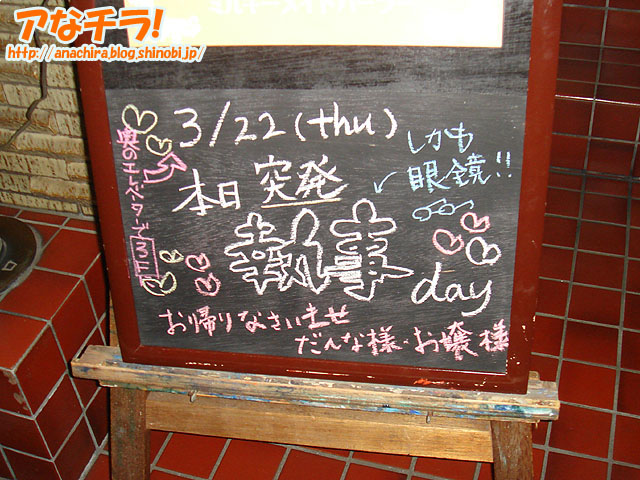 アなチラ!
http://anachira.blog.shinobi.jp/
3/22(thu)
しかも
眼鏡!!
本日 突発
執事
day
奥のエレベータで3Fへ
お帰りなさいませ
だんな様・お嬢様